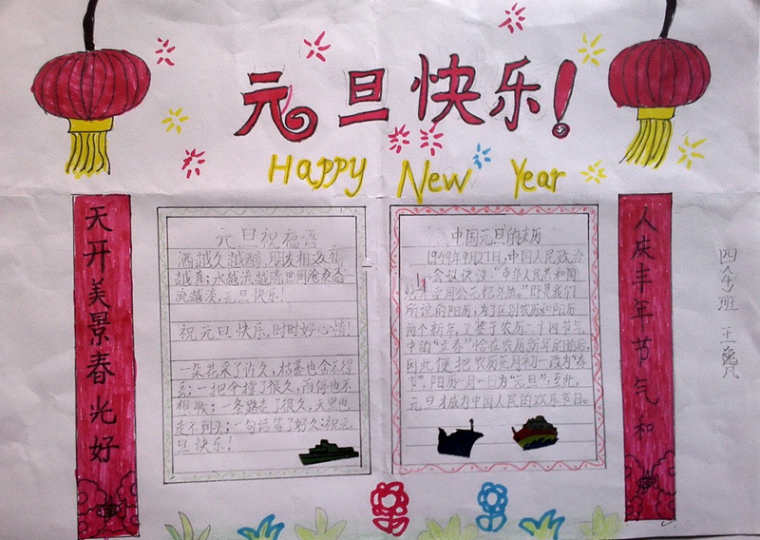 元旦快乐!
Happy New Year
天开美景春光好
元旦祝福语
酒越久越醇,朋友相交
越真;水越流越清
元旦快乐!
祝元旦快乐,时时好心情!
一朵花采了许久,枯萎也舍不得
丢;一把伞撑了很久,雨停也不
一条路走了很久,天黑也
走不到头;一句话等了好久:祝元
旦快乐!
中国元旦的来历
1949年9月27日,中国人民政治
会议决议:"中华人民共和国
纪年采用公元纪年法。"即是我们
所说的阳历,为了区别农历和阳历
两个新年,又鉴于农历二十四节气
中的"立春"恰在农历新年的前后,
因此便把农历正月初一改为"春
节",阳历一月一日为"元旦",至此,
元旦才成为中国人民的欢乐节日。
人庆丰年节气和
四年班 王逸凡